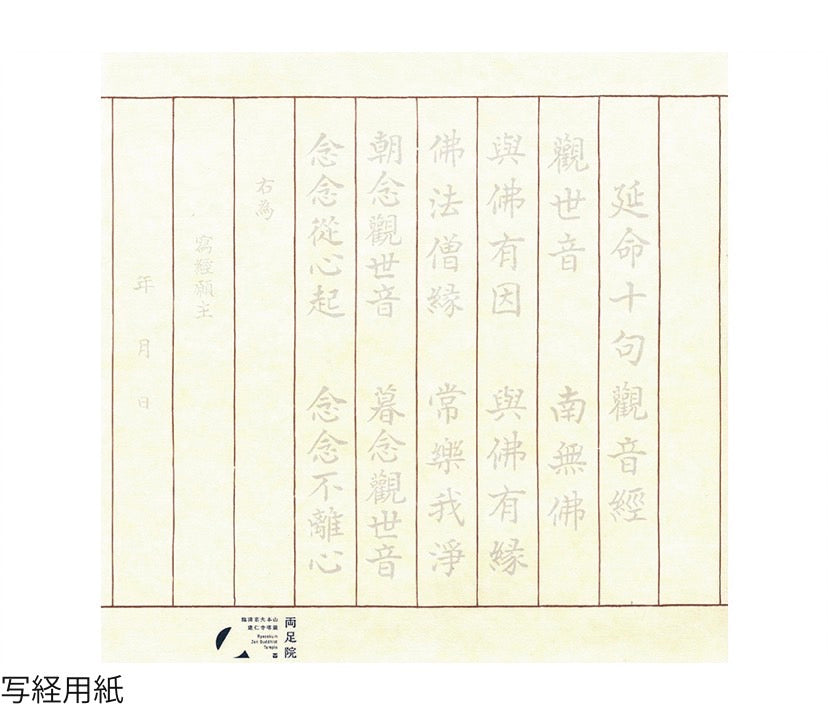 延命十句觀音經
觀世音 南無佛
與佛有因 與佛有縁
佛法僧縁 常樂我淨
朝念觀世音 暮念觀世音
念念從心起 念念不離心
右為
寫經願主
年 月 日
両足院
臨済宗大本山
建仁寺塔頭
Ryosokuin
Zen Buddhist
Temple
写経用紙